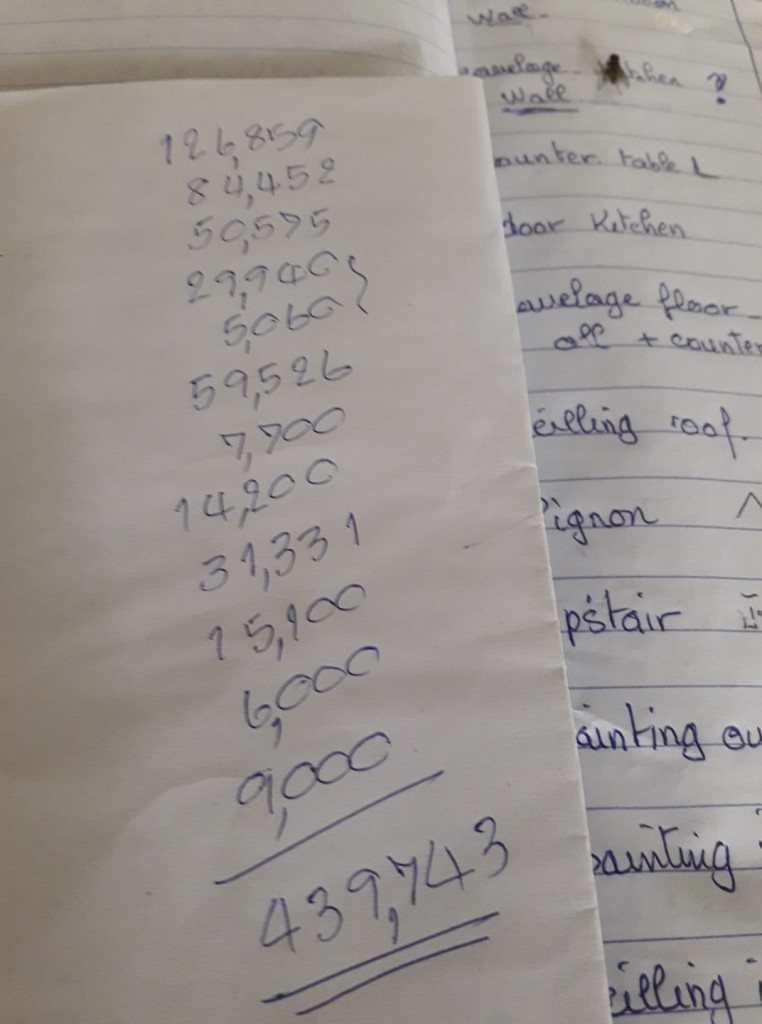 126,859
84,452
50,575
29,940 }
5,060
59,526
7,700
14,200
31,331
15,100
6,000
9,000
439,743
Wall-
avelage - tchen ?
Wall
ounter table L
door Kitchen
avelage floor -
all + counter
eilling roof.
Pignon
pstair
ainting ou
painting
eilling